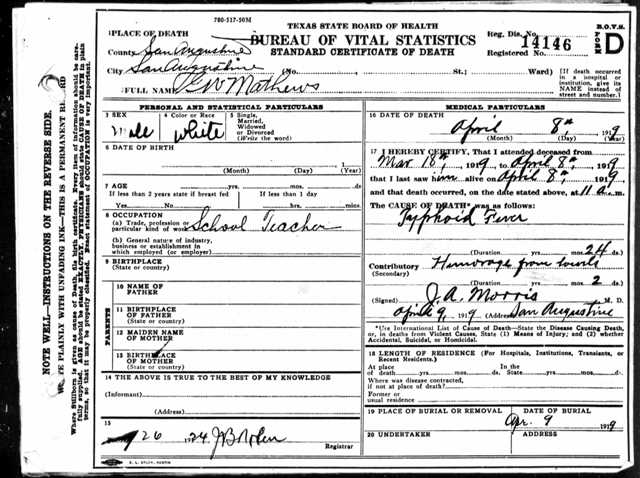 780-517-50M
TEXAS STATE BOARD OF HEALTH
BUREAU OF VITAL STATISTICS
STANDARD CERTIFICATE OF DEATH
Reg. Dis. No.
Registered No. 14146
B.O.V.S. FORM D
PLACE OF DEATH
County San Augustine
City San Augustine (No. St.; Ward)
[If death occurred in a hospital or institution, give its NAME instead of street and number.]
FULL NAME G W Mathews
PERSONAL AND STATISTICAL PARTICULARS
3 SEX Male
4 Color or Race White
5 Single, Married, Widowed or Divorced (Write the word)
6 DATE OF BIRTH
(Month) (Day) (Year)
7 AGE yrs. mos. ds.
If less than 2 years state if breast fed If less than 1 day
Yes No hrs. min.
8 OCCUPATION
(a) Trade, profession or particular kind of work School Teacher
(b) General nature of industry, business or establishment in which employed (or employer)
9 BIRTHPLACE
(State or country)
10 NAME OF FATHER
11 BIRTHPLACE OF FATHER
(State or country)
12 MAIDEN NAME OF MOTHER
13 BIRTHPLACE OF MOTHER
(State or country)
14 THE ABOVE IS TRUE TO THE BEST OF MY KNOWLEDGE
(Informant)
(Address)
15
26
Registrar
MEDICAL PARTICULARS
16 DATE OF DEATH
April 8th, 1919
(Month) (Day) (Year)
17 I HEREBY CERTIFY, That I attended deceased from
Mar 18th, 1919 to April 8th, 1919
that I last saw him alive on April 8th, 1919
and that death occurred, on the date stated above, at 11 a.m.
The CAUSE OF DEATH* was as follows:
Typhoid Fever
(Duration yrs. mos. 24 ds.)
Contributory Hemorage from bowels
(Secondary)
(Duration yrs. mos. 2 ds.)
(Signed) J. A. Morris M. D.
April 9, 1919 (Address) San Augustine
*Use International List of Cause of Death—State the Disease Causing Death, or, in deaths from Violent Causes, State (1) Means of Injury; and (2) whether Accidental, Suicidal, or Homicidal.
18 LENGTH OF RESIDENCE (For Hospitals, Institutions, Transients, or Recent Residents.)
At place of death yrs. mos. ds. In the State yrs. mos. ds.
Where was disease contracted, if not at place of death?
Former or usual residence
19 PLACE OF BURIAL OR REMOVAL
DATE OF BURIAL
Apr. 9 1919
20 UNDERTAKER
ADDRESS
NOTE WELL—INSTRUCTIONS ON THE REVERSE SIDE.
PLAINLY WITH UNFADING INK—THIS IS A PERMANENT